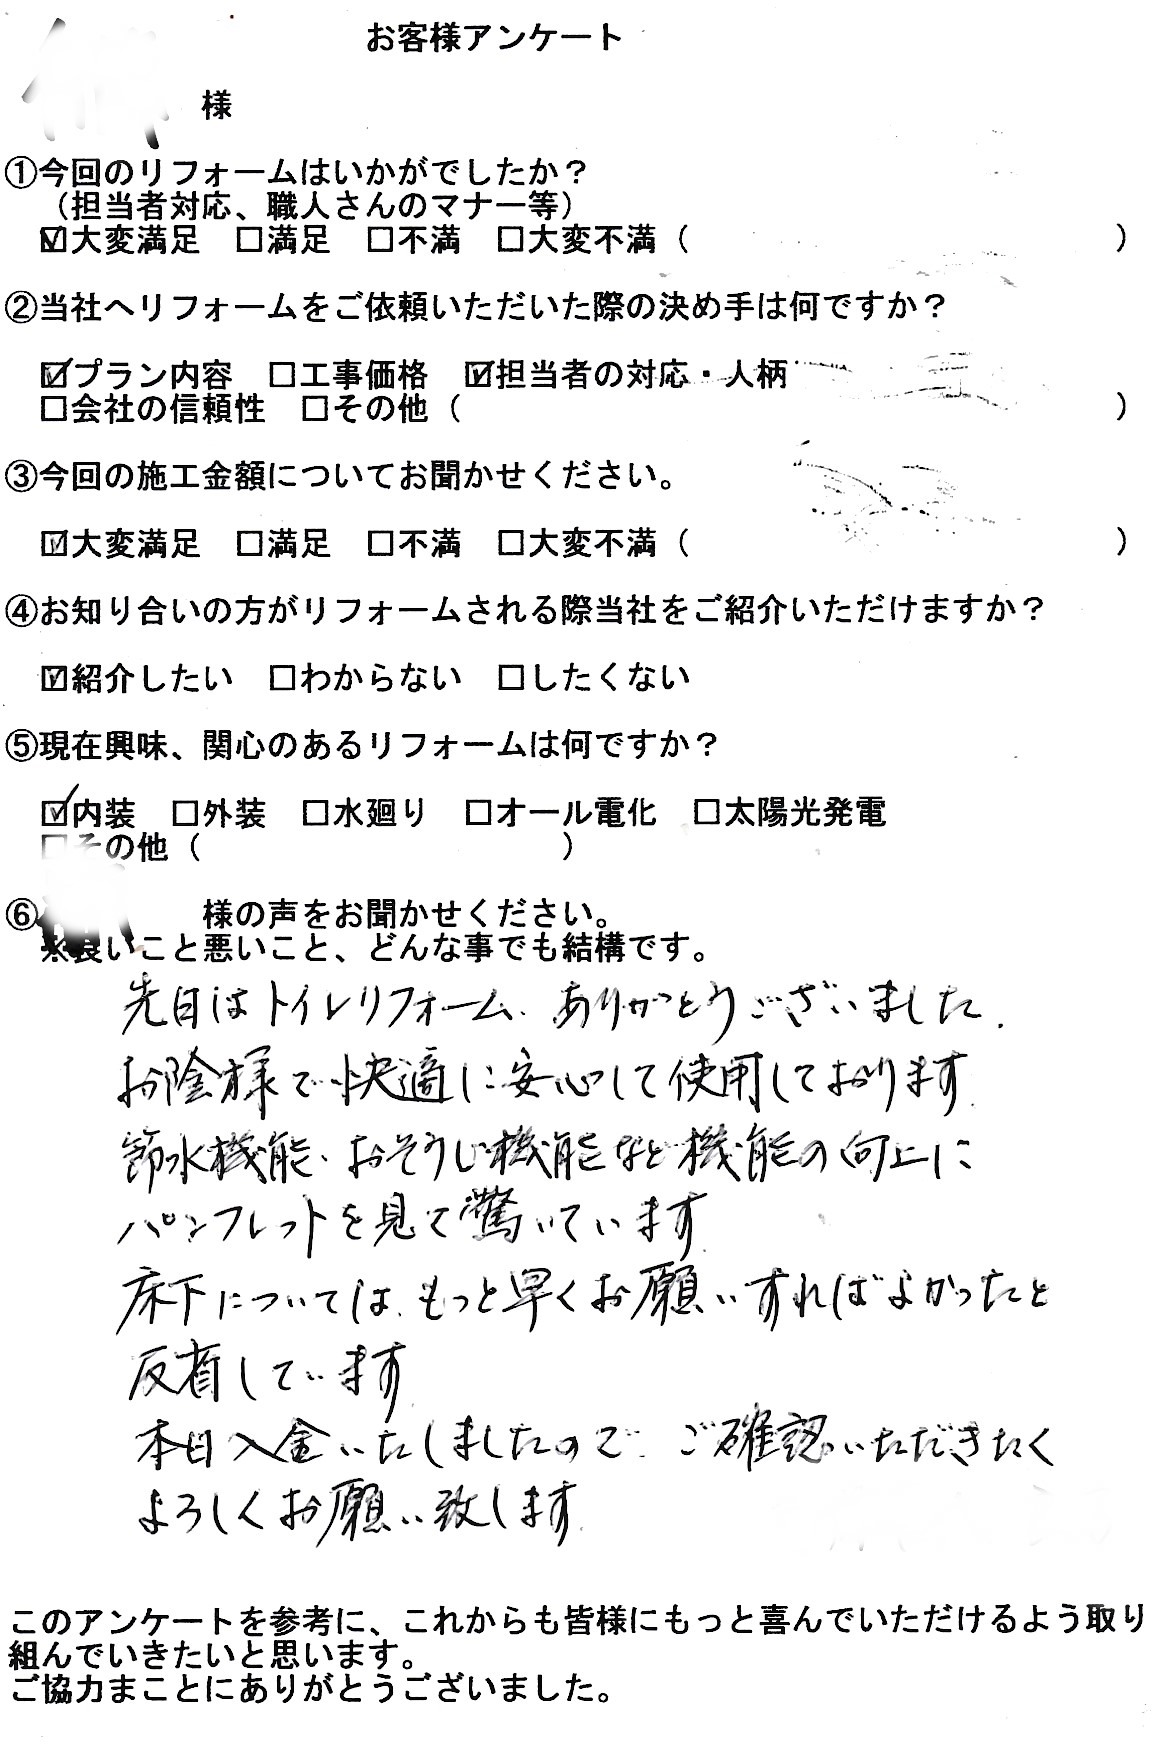 お客様アンケート
様
①今回のリフォームはいかがでしたか？
（担当者対応、職人さんのマナー等）
☑大変満足　□満足　□不満　□大変不満（　　　　　　　　　　　　　）
②当社へリフォームをご依頼いただいた際の決め手は何ですか？
☑プラン内容　□工事価格　☑担当者の対応・人柄
□会社の信頼性　□その他（　　　　　　　　　　　　　　　　　　　　）
③今回の施工金額についてお聞かせください。
☑大変満足　□満足　□不満　□大変不満（　　　　　　　　　　　　　）
④お知り合いの方がリフォームされる際当社をご紹介いただけますか？
☑紹介したい　□わからない　□したくない
⑤現在興味、関心のあるリフォームは何ですか？
☑内装　□外装　□水廻り　□オール電化　□太陽光発電
□その他（　　　　　　　　　　　）
⑥　　　　　様の声をお聞かせください。
※良いこと悪いこと、どんな事でも結構です。
先日はトイレリフォーム、ありがとうございました。
お陰様で快適に安心して使用しております。
節水機能、おそうじ機能など機能の向上に
パンフレットを見て驚いています。
床下については、もっと早くお願いすればよかったと
反省しています。
本日入金いたしましたので、ご確認いただきたく
よろしくお願い致します。
このアンケートを参考に、これからも皆様にもっと喜んでいただけるよう取り
組んでいきたいと思います。
ご協力まことにありがとうございました。